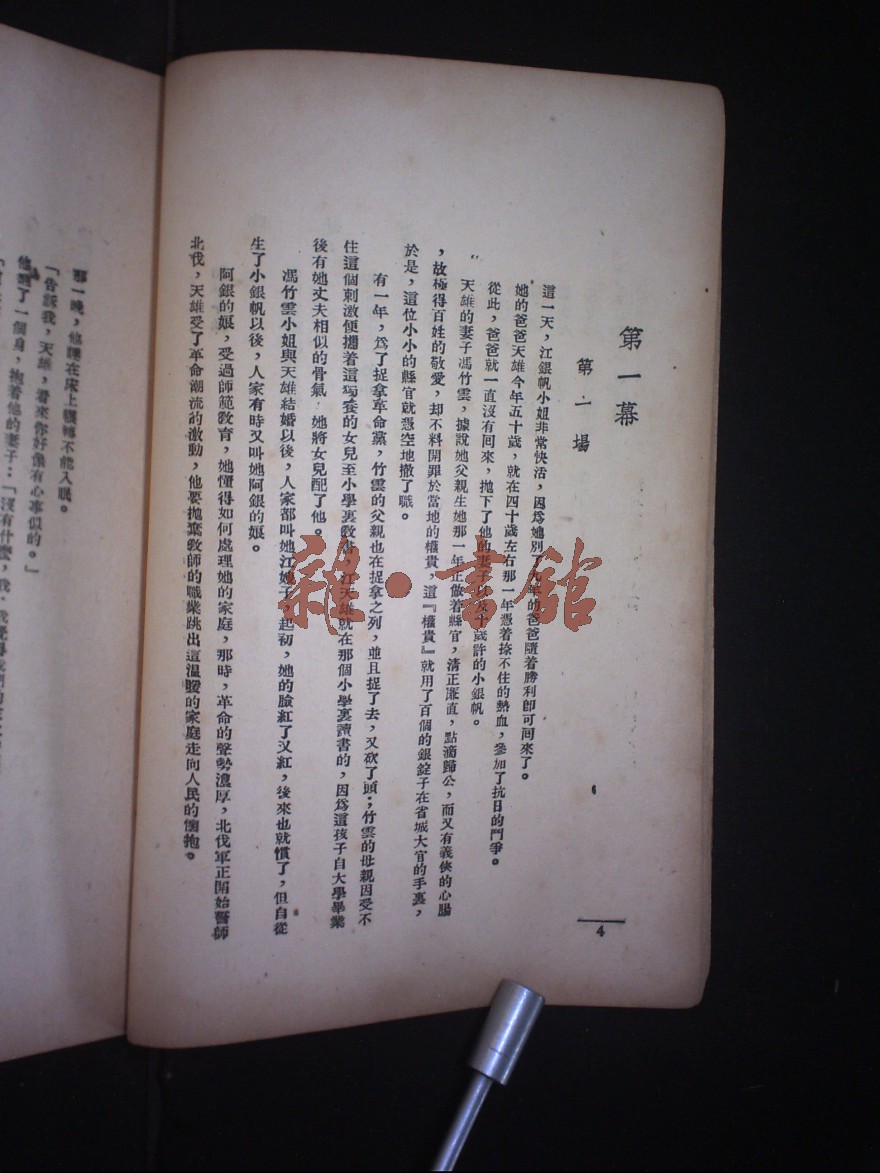 第一幕
第一場
這一天，江銀帆小姐非常快活，因爲她別了九年的爸爸隨着勝利卽可回來了。
她的爸爸天雄今年五十歲，就在四十歲左右那一年憑着捺不住的熱血，參加了抗日的鬥爭。
從此，爸爸就一直沒有回來，拋下了他的妻子以及十歲許的小銀帆。
天雄的妻子馮竹雲，據說她父親生她那一年正做着縣官，清正漲直，點滴歸公，而又有義俠的心腸
，故極得百姓的敬愛，却不料開罪於當地的權貴，這『權貴』就用了百個的銀錠子在省城大官的手裏，
於是，這位小小的縣官就憑空地撤了職。
有一年，爲了捉拿革命黨，竹雲的父親也在捉拿之列，並且捉了去，又砍了頭；竹雲的母親因受不
住這個刺激便攜着這獨養的女兒至小學裏教書，江天雄就在那個小學裏讀書的，因爲這孩子自大學畢業
後有她丈夫相似的骨氣，她將女兒配了他。
馮竹雲小姐與天雄結婚以後，人家都叫她江嫂子，起初，她的臉紅了又紅，後來也就慣了，但自從
生了小銀帆以後，人家有時又叫她阿銀的娘。
阿銀的娘，受過師範教育，她懂得如何處理她的家庭，那時，革命的聲勢濃厚，北伐軍正開始誓師
北伐，天雄受了革命潮流的激動，他要拋棄教師的職業跳出這溫暖的家庭走向人民的懷抱。
4
那一晚，他睡在床上輾轉不能入眠。
「告訴我，天雄，看來你好像有心事似的。」
他翻了一個身，抱着他的妻子：「沒有什麼，我，我覺得我們的
雜·書館